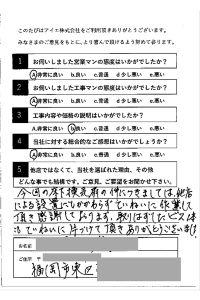 このたびはアイエ株式会社をご利用頂きありがとうございます。
みなさまのご意見をもとに、より喜んで頂けるよう努めて参ります。
1 お伺いしました営業マンの態度はいかがでしたか?
A.非常に良い b.良い c.普通 d少し悪い e.悪い
2 お伺いしました工事マンの態度はいかがでしたか?
A.非常に良い b.良い c.普通 d少し悪い e.悪い
3 工事内容や価格の説明はいかがでしたか?
A.非常に良い b.良い c.普通 d少し悪い e.悪い
4 当社に対する総合的なご感想はいかがでしょうか?
A.非常に良い b.良い c.普通 d少し悪い e.悪い
5 他店ではなくて、当社を選ばれた理由、その他
どんな事でも結構です。ご意見、ご要望をお聞かせ下さい。
今回の床下換気扇の件につきましては、他店
による設置にもかかわらずていねいに作業して
頂き感謝しております。取りはずしたゴミ体
もていねいに片づけて頂きありがとうございま
お名前
ご住所 〒
福岡市東区